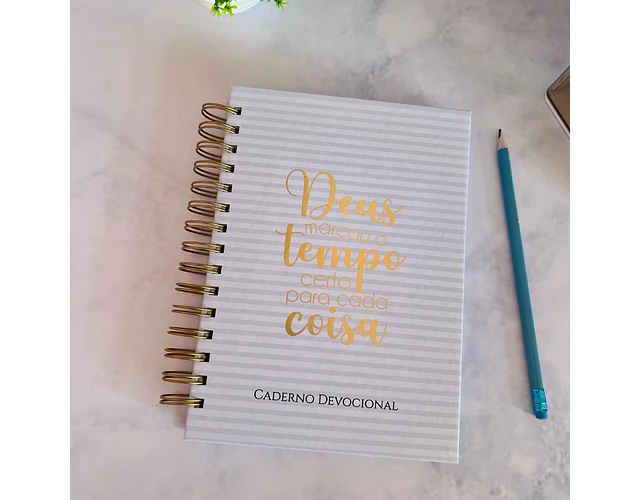 Deus
marcou o
tempo
certo
para cada
coisa
CADERNO DEVOCIONAL